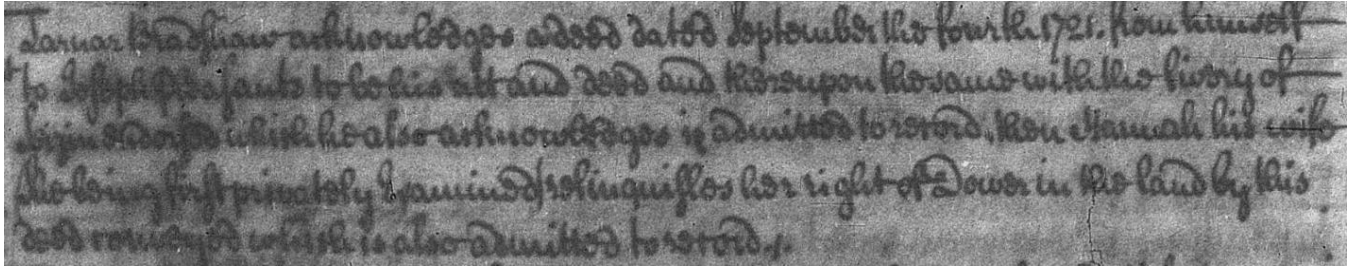 Larnar Bradshaw acknowledges a deed dated September the fourth 1721. from himself
to Joseph Pleasants to be his act and deed and thereupon the same with the livery of
seizin endorsed which he also acknowledges is admitted to record, then Hannah his wife
she being first privately Examined) relinquishes her right of Dower in the land by this
deed conveyed which is also admitted to record.